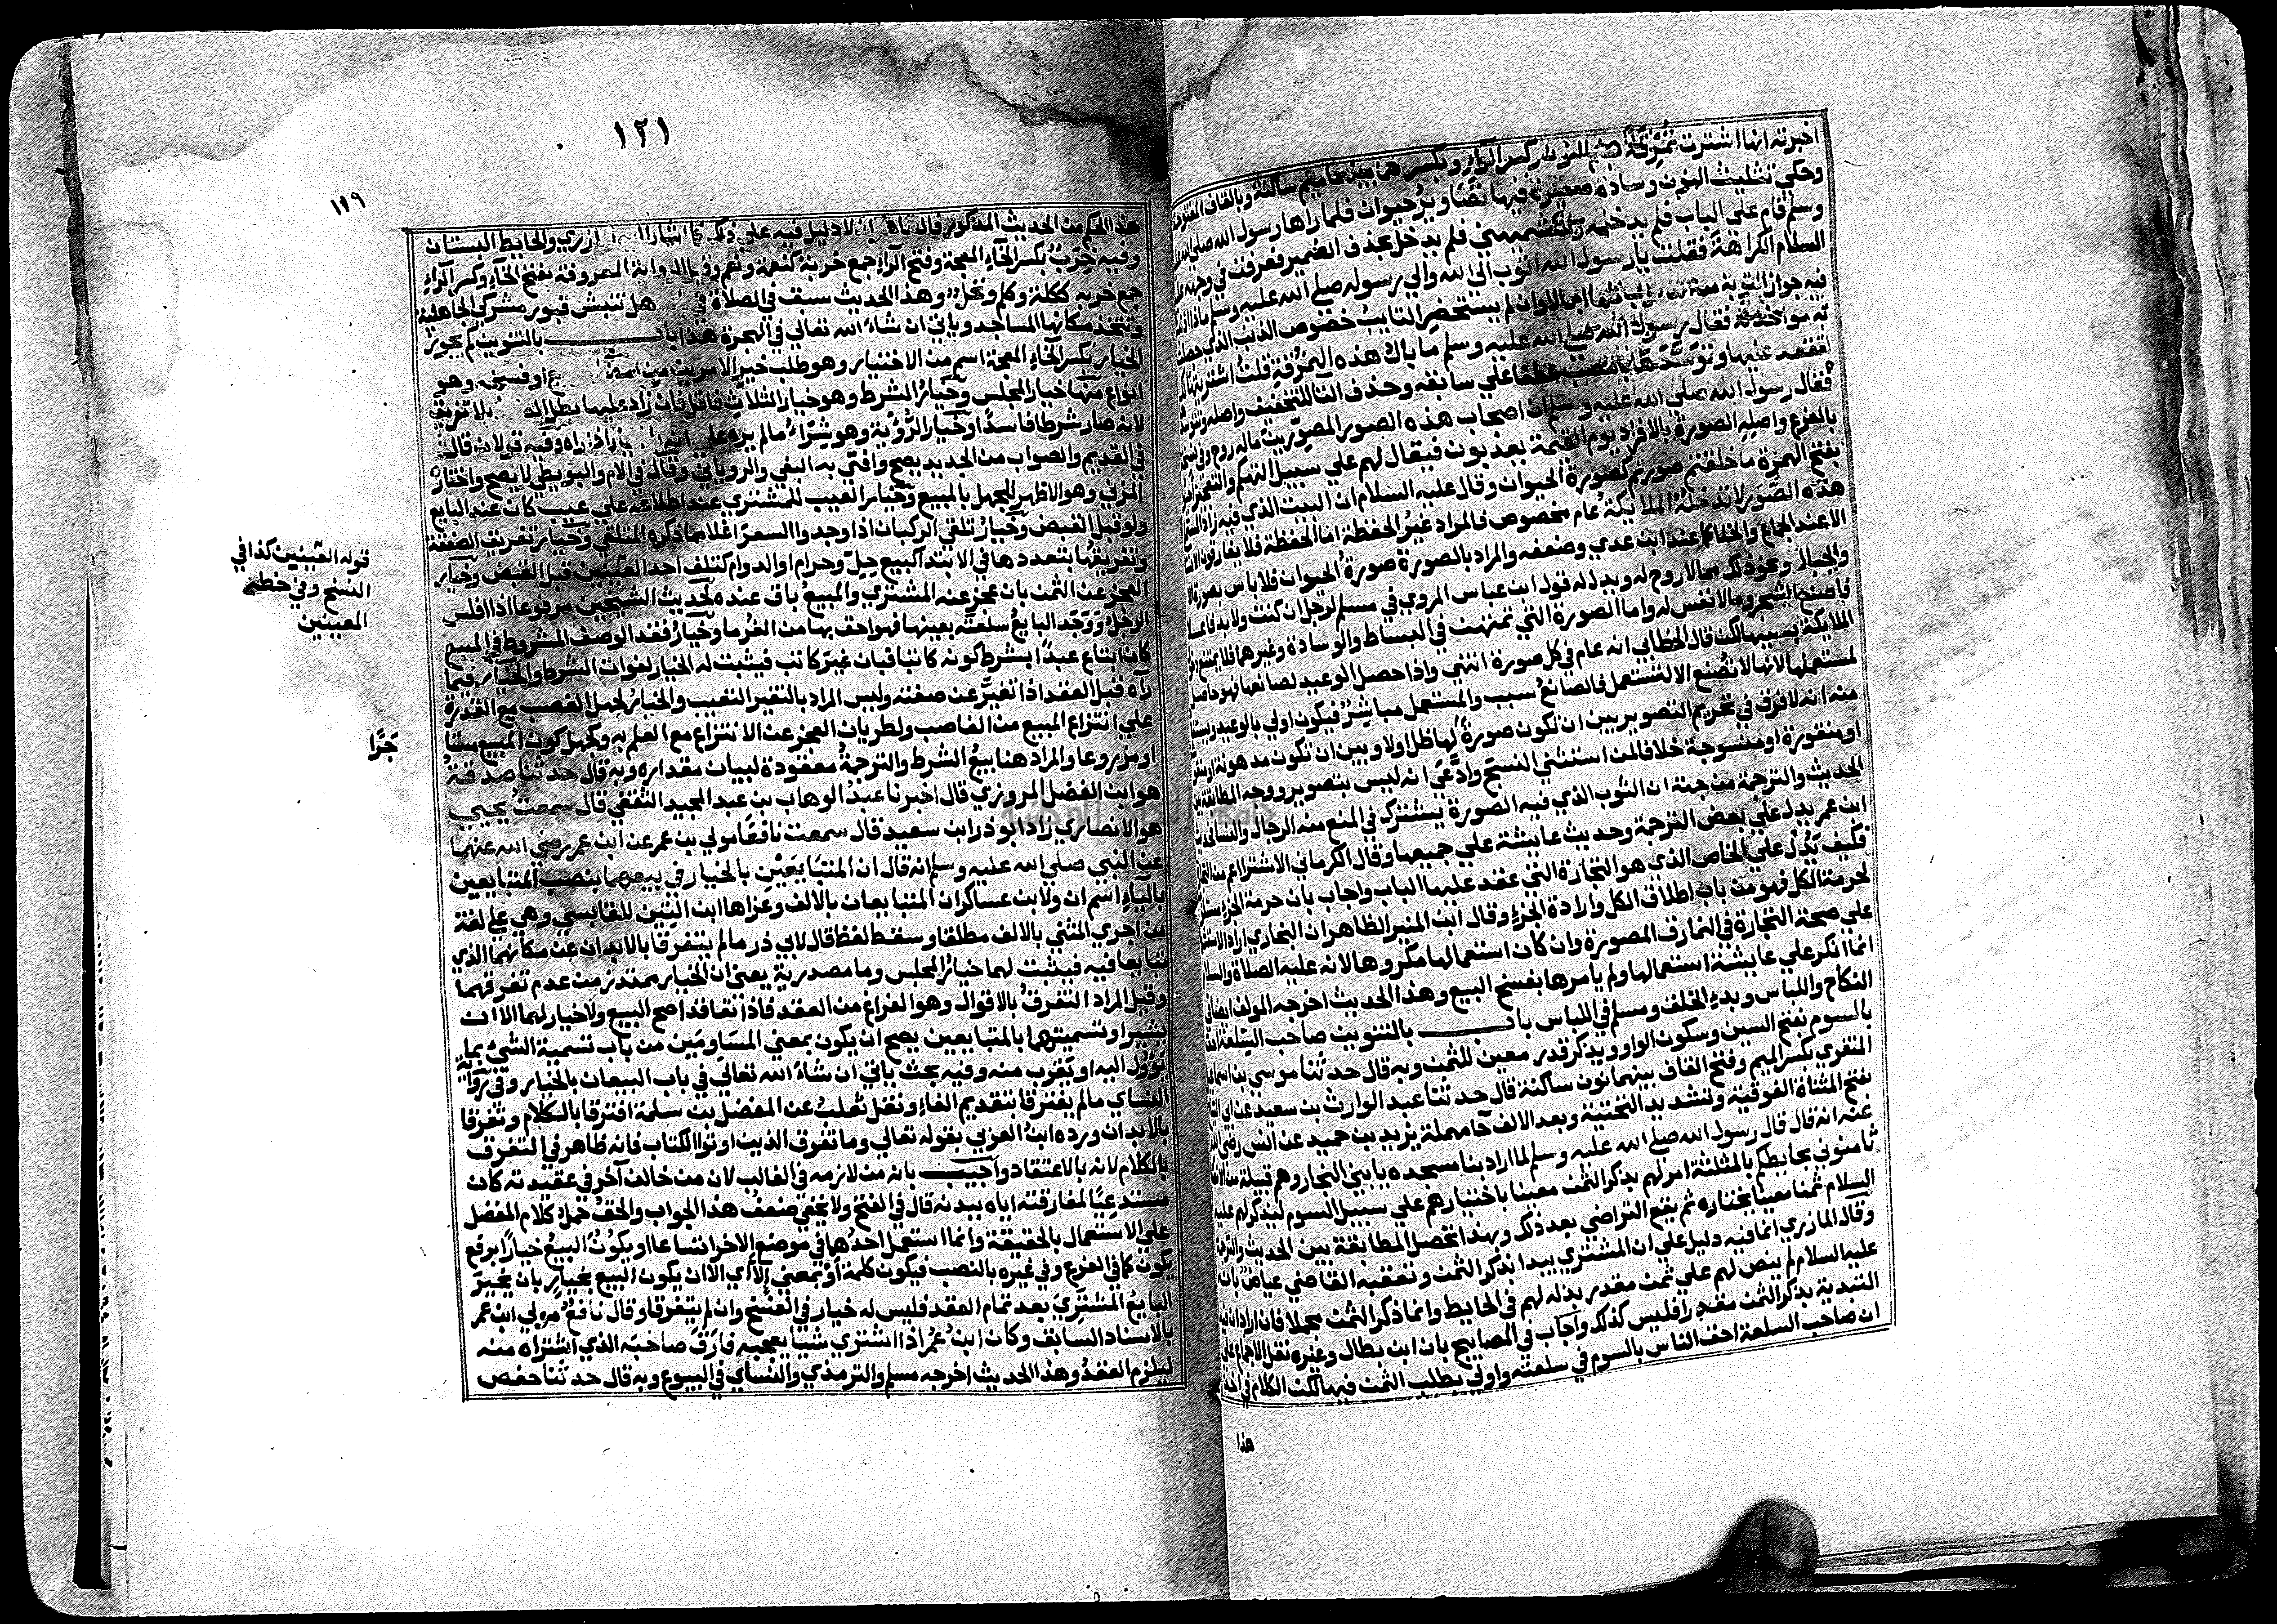 اخبرته انها اشترت نمرقة بضم النون والراء وبكسرهما بينهما ميم ساكنة وبالقاف المفتوحة
وحكي تثليث النون وسادة صغيرة فيها تصاوير حيوان فلما رآها رسول الله صلى الله عليه
وسلم قام علي الباب فلم يدخله وللكشميهني فلم يدخل بحذف الضمير فعرفت في وجهه عليه
السلام الكراهة فقلت يا رسول الله اتوب الى الله والي رسوله صلى الله عليه وسلم ماذا اذنبت
فيه جواز التوبة من الذنوب كلها اجمالا وان لم يستحضر التايب خصوص الذنب الذي حصلت
به مواخذته فقال رسول الله صلى الله عليه وسلم ما بال هذه النمرقة قلت اشتريتها لك
لتقعد عليها وتوسدها بالنصب عطفا علي سابقه وحذف التا للتخفيف واصله وتتوسدها
فقال رسول الله صلى الله عليه وسلم ان اصحاب هذه الصور المصورين ماله روح
بالفرع واصله الصورة بالافراد يوم القيمة يعذبون فيقال لهم علي سبيل التهكم والتعجيز احيوا
بفتح الهمزة ما خلقتم صورتم كصورة الحيوان وقال عليه السلام ان البيت الذي فيه
هذه الصور لا تدخله الملايكة عام مخصوص فالمراد غير الحفظة اما الحفظة فلا يفارقون الانسان
الا عند الجماع والخلا كما عند ابن عدي وضعفه والمراد بالصورة صورة الحيوان فلا باس بصورة الاشجار
والجبال ونحو ذلك مما لا روح له ويدل له قول ابن عباس المروي في مسلم لرجل ان كنت ولا بد فاعلا
فاصنع الشجر وما لا نفس له واما الصورة التي تمتهن في البساط والوسادة وغيرهما فلا يمتنع دخول
الملايكة بسببها لكن قال الخطابي انه عام في كل صورة انتهي واذا حصل الوعيد لصانعها فهو حاصل
لمستعملها لانها لا تصنع الا لتستعمل فالصانع سبب والمستعمل مباشر فيكون اولي بالوعيد ويستفاد
منه انه لا فرق في تحريم التصوير بين ان تكون صورة لها ظل اولا وبين ان تكون مدهونة او منقوشة
او منقورة او منسوجة خلافا لمن استثني النسج وادعي انه ليس بتصوير ووجه المطابقة بين
الحديث والترجمة من جهة ان الثوب الذي فيه الصورة يشترك في المنع منه الرجال والنسا فحديث
ابن عمر يدل علي بعض الترجمة وحديث عايشة علي جميعها وقال الكرماني الاشترا اعم من التجارة
فكيف يدل علي الخاص الذي هو التجارة التي عقد عليها الباب واجاب بان حرمة الجزء مستلزمة
لحرمة الكل فهو من باب اطلاق الكل وارادة الجزء وقال ابن المنير الظاهر ان البخاري اراد الاستشهاد
علي صحة التجارة في النمارق المصورة وان كان استعمالها مكروها لانه عليه الصلاة والسلام
انما انكر علي عايشة استعمالها ولم يامرها بفسخ البيع وهذا الحديث اخرجه المولف ايضا في
النكاح واللباس وبدء الخلق ومسلم في اللباس باب بالتنوين صاحب السلعة احق
بالسوم بفتح السين وسكون الواو ويذكر قدر معين للثمن وبه قال حدثنا موسي بن اسماعيل
المنقري بكسر الميم وفتح القاف بينهما نون ساكنة قال حدثنا عبد الوارث بن سعيد عن ابي التياح
بفتح المثناة الفوقية وتشديد التحتية وبعد الالف حا مهملة يزيد بن حميد عن انس رضي الله
عنه انه قال قال رسول الله صلى الله عليه وسلم لما اراد بنا مسجده يا بني النجار وهم قبيلة من الانصار
ثامنوني بحايطكم بالمثلثة امر لهم بذكر الثمن معينا باختيارهم علي سبيل السوم ليذكر لهم عليه
السلام ثمنا معينا يختاره ثم يقع التراضي بعد ذلك وبهذا تحصل المطابقة بين الحديث والترجمة
وقال المازري انما فيه دليل علي ان المشتري يبدا بذكر الثمن وتعقبه القاضي عياض بانه
عليه السلام لم ينص لهم علي ثمن مقدر بذله لهم في الحايط وانما ذكر الثمن مجملا فان اراد ان فيه
التبدية بذكر الثمن مقدرا فليس كذلك واجاب في المصابيح بان ابن بطال وغيره نقل الاجماع علي
ان صاحب السلعة احق الناس بالسوم في سلعته واولي بطلب الثمن فيها لكن الكلام في اخذ
هذا
١٢١
١١٩
هذا الحكم من الحديث المذكور فان الظاهر ان لا دليل فيه علي ذلك كما اشار اليه المازري والحايط البستان
وفيه خرب بكسر الخاء المعجمة وفتح الراء جمع خربة كنعمة ونعم وفي الرواية المعروفة بفتح الخاء وكسر الراء
جمع خربه ككلمة وكلم ونخل وهذا الحديث سبق في الصلاة في باب هل تنبش قبور مشركي الجاهلية
ويتخذ مكانها المساجد وياتي ان شاء الله تعالي في الهجرة هذا باب بالتنوين كم يجوز
الخيار بكسر الخاء المعجمة اسم من الاختيار وهو طلب خير الامرين من امضاء البيع او فسخه وهو
انواع منها خيار المجلس وخيار الشرط وهو خيار الثلاث فاقل فان زاد عليها بطل البيع بلا تفريق
لانه صار شرطا فاسدا وخيار الرؤية وهو شراء ما لم يره علي انه بالخيار اذا راه وفيه قولان قال
في القديم والصواب من الجديد يصح وافتي به البغوي والروياني وقال في الام والبويطي لا يصح واختاره
المزني وهو الاظهر للجهل بالمبيع وخيار العيب للمشتري عند اطلاعه علي عيب كان عند البايع
ولو قبل القبض وخيار تلقي الركبان اذا وجدوا السعر اغلا مما ذكره المتلقي وخيار تفريق الصفقة
وتفريقها بتعددها في الابتدا كبيع حل وحرام او الدوام كتلف احد العينين قبل القبض وخيار
العجز عن الثمن بان عجز عنه المشتري والمبيع باق عنده لحديث الشيخين مرفوعا اذا افلس
الرجل ووجد البايع سلعته بعينها فهو احق بها من الغرما وخيار فقد الوصف المشروط في المبيع
كان ابتاع عبدا بشرط كونه كاتبا فبان غير كاتب فيثبت له الخيار لفوات الشرط والخيار فيما
رآه قبل العقد اذا تغير عن صفته وليس المراد بالتغير التعيب والخيار لجهل الغصب مع القدرة
علي انتزاع المبيع من الغاصب ولطريان العجز عن الانتزاع مع العلم به ولجهل كون المبيع مستاجرا
او مزروعا والمراد هنا بيع الشرط والترجمة معقودة لبيان مقداره وبه قال حدثنا صدقة
هو ابن الفضل المروزي قال اخبرنا عبد الوهاب بن عبد المجيد الثقفي قال سمعت يحيي
هو الانصاري زاد ابو ذر ابن سعيد قال سمعت نافعا مولي بن عمر عن ابن عمر رضي الله عنهما
عن النبي صلى الله عليه وسلم انه قال ان المتبايعين بالخيار في بيعهما بنصب المتبايعين
بالياء اسم ان ولابن عساكر ان المتبايعان بالالف وعزاها ابن التين للقابسي وهي علي لغة
من اجري المثني بالالف مطلقا وسقط لفظ قال لابي ذر ما لم يتفرقا بالابدان عن مكانهما الذي
تبايعا فيه فيثبت لهما خيار المجلس وما مصدرية يعني ان الخيار ممتد زمن عدم تفرقهما
وقيل المراد التفرق بالاقوال وهو الفراغ من العقد فاذا تعاقدا صح البيع ولا خيار لهما الا ان
يشترطا وتسميتهما بالمتبايعين يصح ان يكون بمعني المتساومين من باب تسمية الشيء بما
يؤول اليه او يقرب منه وفيه بحث ياتي ان شاء الله تعالي في باب البيعان بالخيار وفي رواية
النساي ما لم يفترقا بتقديم الفاء ونقل ثعلب عن المفضل بن سلمة افترقا بالكلام وتفرقا
بالابدان ورده ابن العربي بقوله تعالي وما تفرق الذين اوتوا الكتاب فانه ظاهر في التفرق
بالكلام لانه بالاعتقاد واجيب بانه من لازمه في الغالب لان من خالف آخر في عقيدته كان
مستدعيا لمفارقته اياه ببدنه قال في الفتح ولا يخفي ضعف هذا الجواب والحق حمل كلام المفضل
علي الاستعمال بالحقيقة وانما استعمل احدهما في موضع الاخر اتساعا او يكون البيع خيارا برفع
يكون كما في الفرع وفي غيره بالنصب فيكون كلمة او بمعني الا اي الا ان يكون البيع بخيار بان يخير
البايع المشتري بعد تمام العقد فليس له خيار في الفسخ وان لم يتفرقا وقال نافع مولي ابن عمر
بالاسناد السابق وكان ابن عمر اذا اشتري شيئا يعجبه فارق صاحبه الذي اشتراه منه
ليلزم العقد وهذا الحديث اخرجه مسلم والترمذي والنساي في البيوع وبه قال حدثنا حفص
قوله العينين كذا في
النسخ وفي خطه
المعينين
جرا